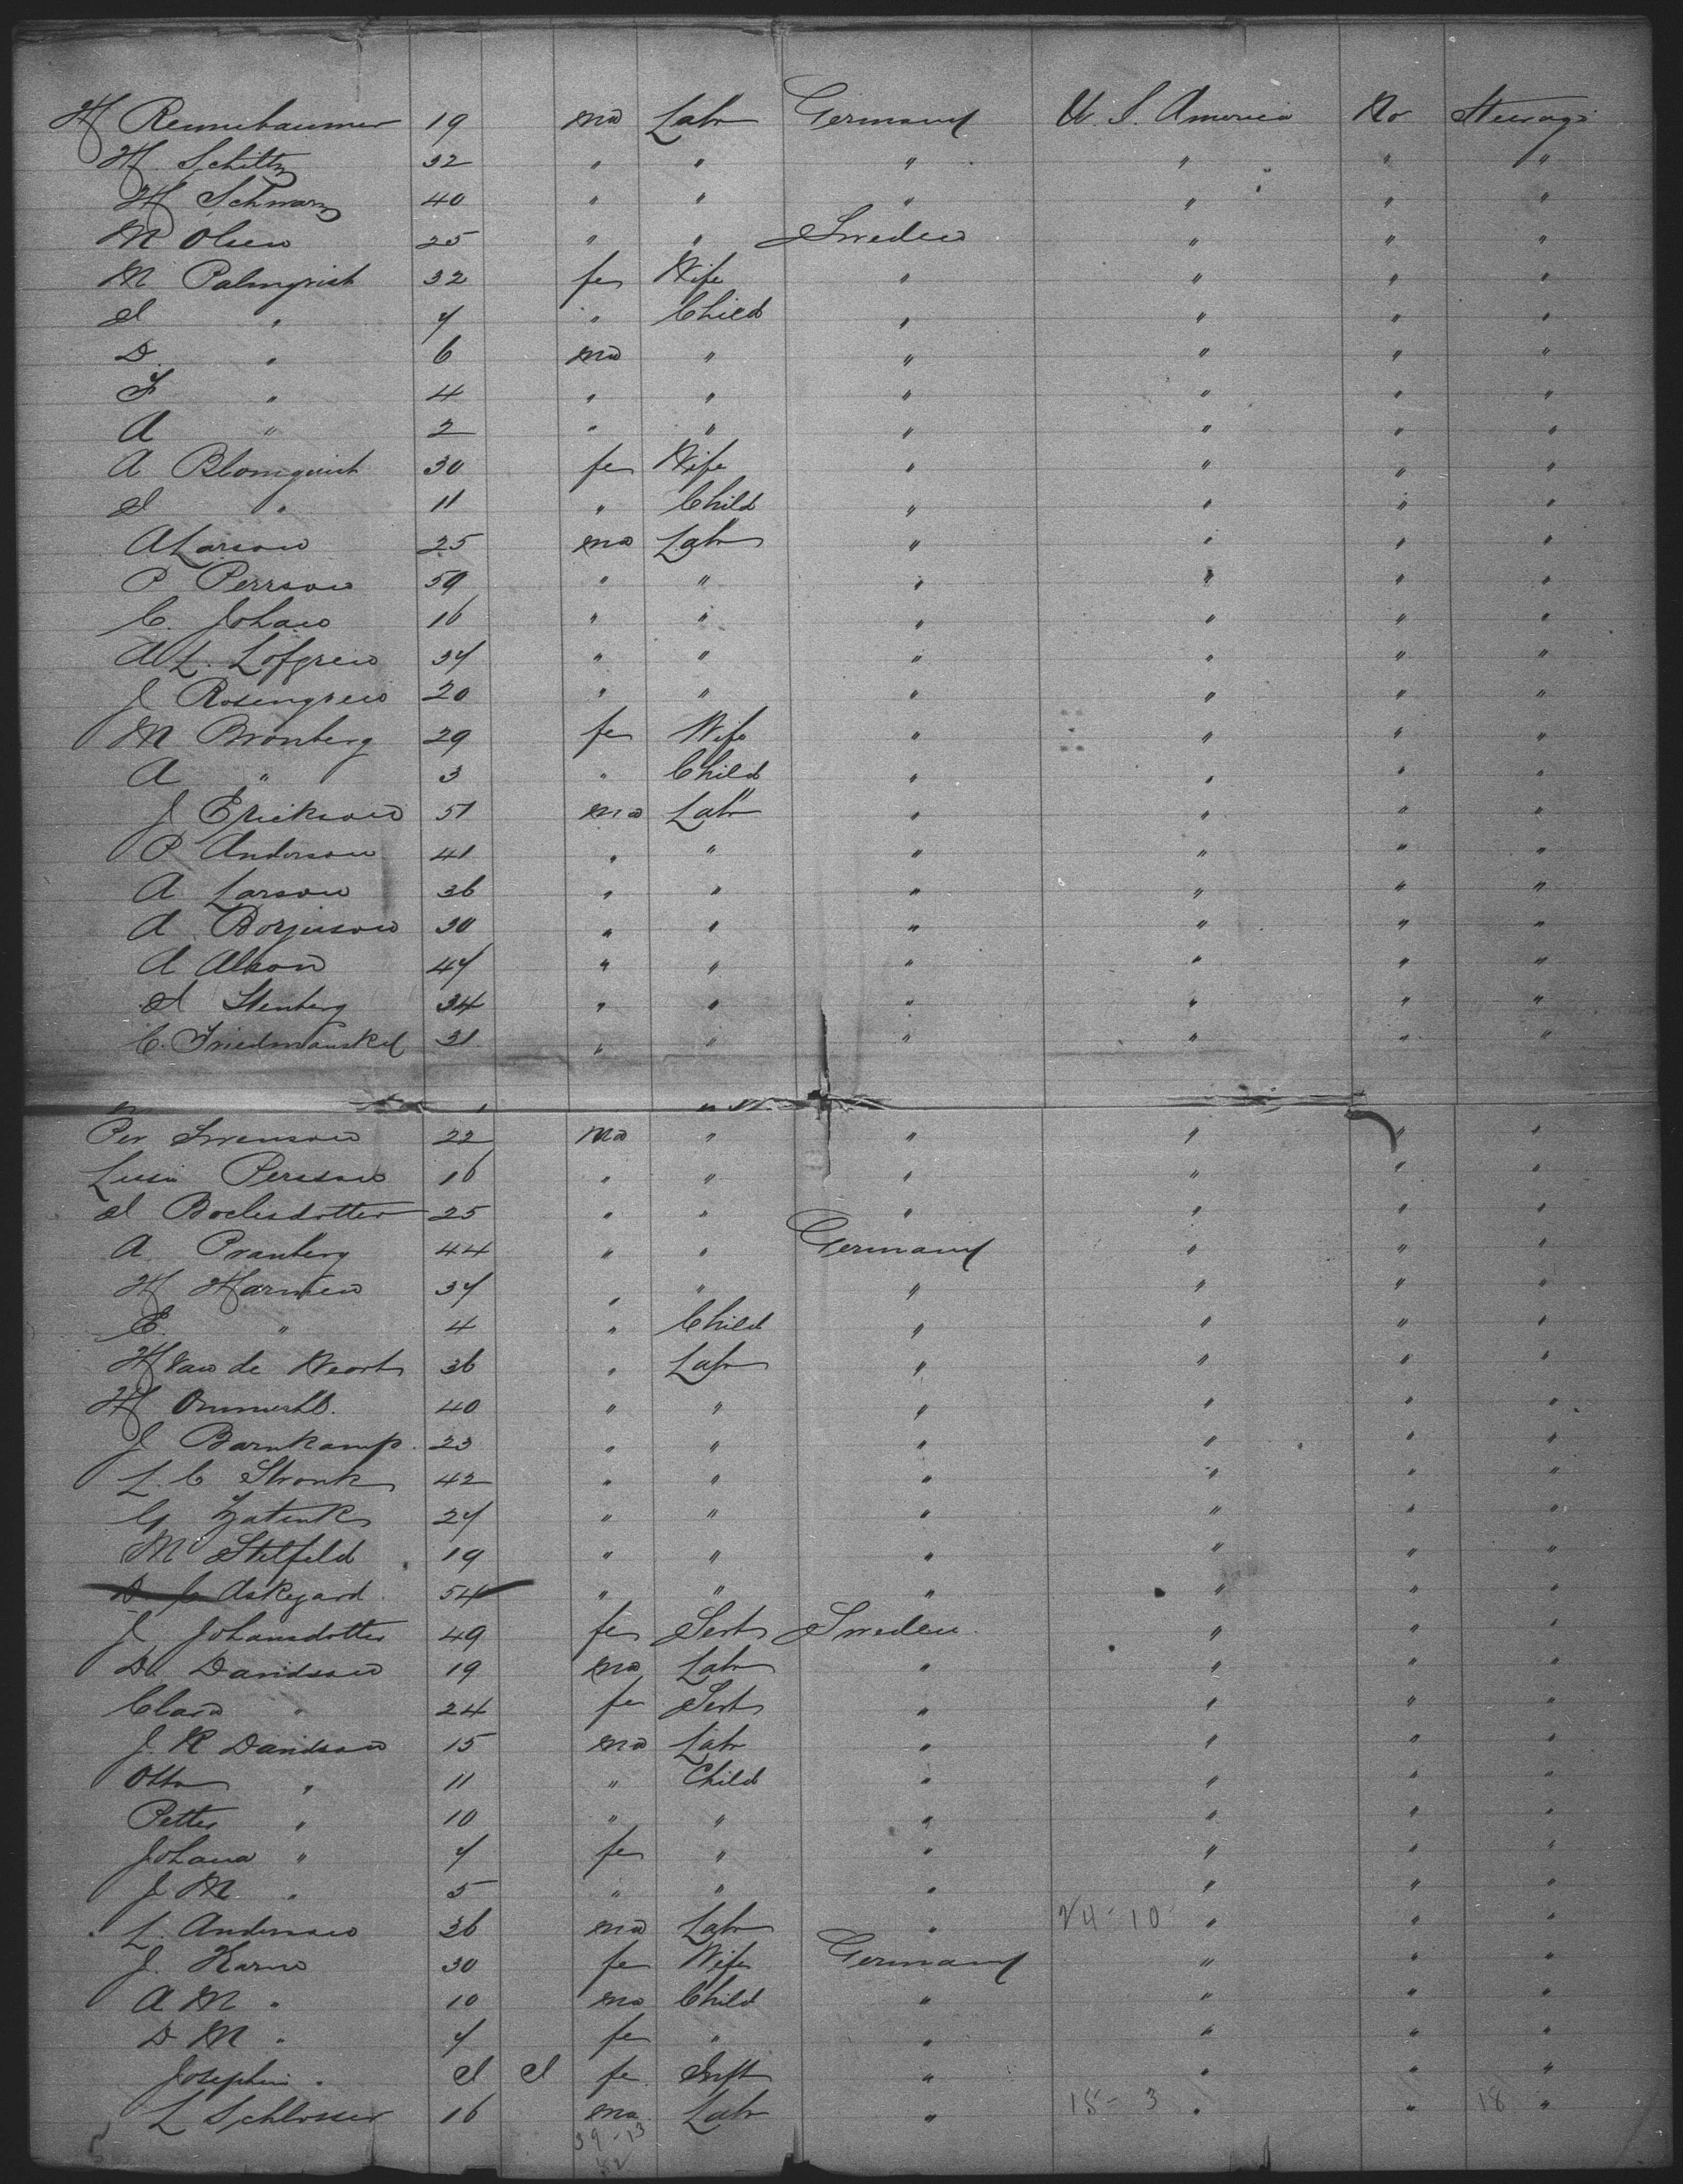 H Rennebaumer 19 ma Labr Germany U. S. America No Steerage
H Schiltz 32 " " " " " "
H Schwarz 40 " " " " " "
M Olsen 25 " " Sweden " " "
M Palmqvist 32 fe Wife " " " "
I " 7 " Child " " " "
D. " 6 ma " " " " "
F " 4 " " " " " "
A " 2 " " " " " "
A Blomquist 30 fe Wife " " " "
I " 11 " Child " " " "
A Larson 25 ma Labr " " " "
P Perrson 59 " " " " " "
C. Johan 16 " " " " " "
A L. Lofgren 37 " " " " " "
J Rosengren 20 " " " " " "
M Bronberg 29 fe Wife " " " "
A " 3 " Child " " " "
J Erickson 51 ma Labr " " " "
P Anderson 41 " " " " " "
A Larson 36 " " " " " "
A Borjeson 30 " " " " " "
A Alson 47 " " " " " "
I Stenberg 34 " " " " " "
C. Friedmansky 31. " " " " " "
Per Swenson 22 ma " " " " "
Persson 16 " " " " " "
I Boelisdotter 25 " " " " " "
A Pranberg 44 " " Germany " " "
H Harmen 37 " " " " " "
E. " 4 " Child " " " "
H Van de Weort 36 " Labr " " " "
H 40 " " " " " "
J Barnkamp. 23 " " " " " "
L. C Stronk 42 " " " " " "
G 27 " " " " " "
M Stelfeld 19 " " " " " "
D. C Askegard. 54 " " " " " "
J Johansdotter 49 fe Sert Sweden " " "
D. Davidson 19 ma Labr " " " "
Clara " 24 fe Sert " " " "
J. R Davidson 15 ma Labr " " " "
Otto " 11 " Child " " " "
Petter " 10 " " " " " "
Johana " 7 fe " " " " "
J. M " 5 " " " " " "
L. Anderson 36 ma Labr " 24-10 " " "
J. Harms 30 fe Wife Germany " " "
A M " 10 ma Child " " " "
D M " 7 fe " " " " "
Josephin " I I fe Inft " " " "
L Schlosser 16 ma Labr " 15-3 " " 18 "
39-13